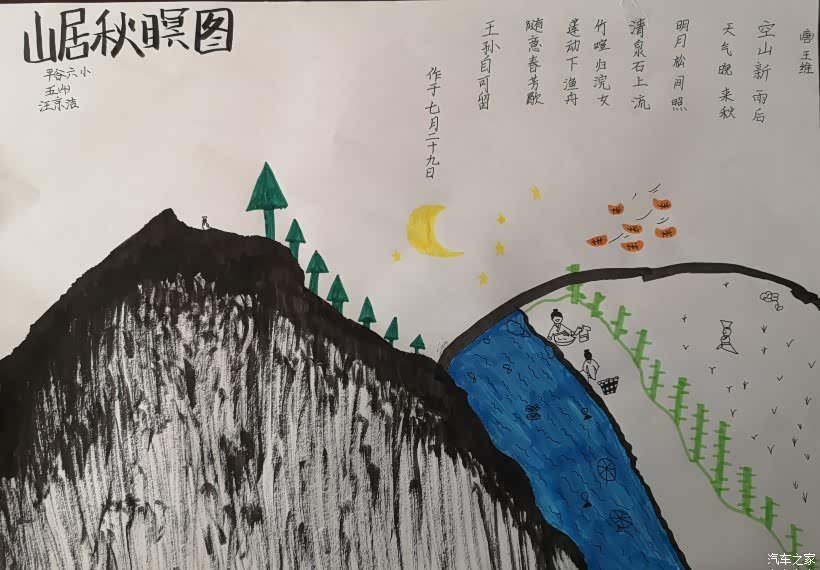 山居秋暝图
平谷六小
五(4)
汪京浩
唐 王维
空山新雨后
天气晚来秋
明月松间照
清泉石上流
竹喧归浣女
莲动下渔舟
随意春芳歇
王孙自可留
作于七月二十九日
汽车之家